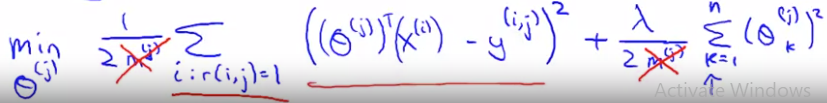 min θ^(j) 1/(2m^(j)) Σ i:r(i,j)=1 ((θ^(j))^T(x^(i)) - y^(i,j))^2 + λ/(2m^(j)) Σ k=1 n (θ_k^(j))^2
Activate Windows